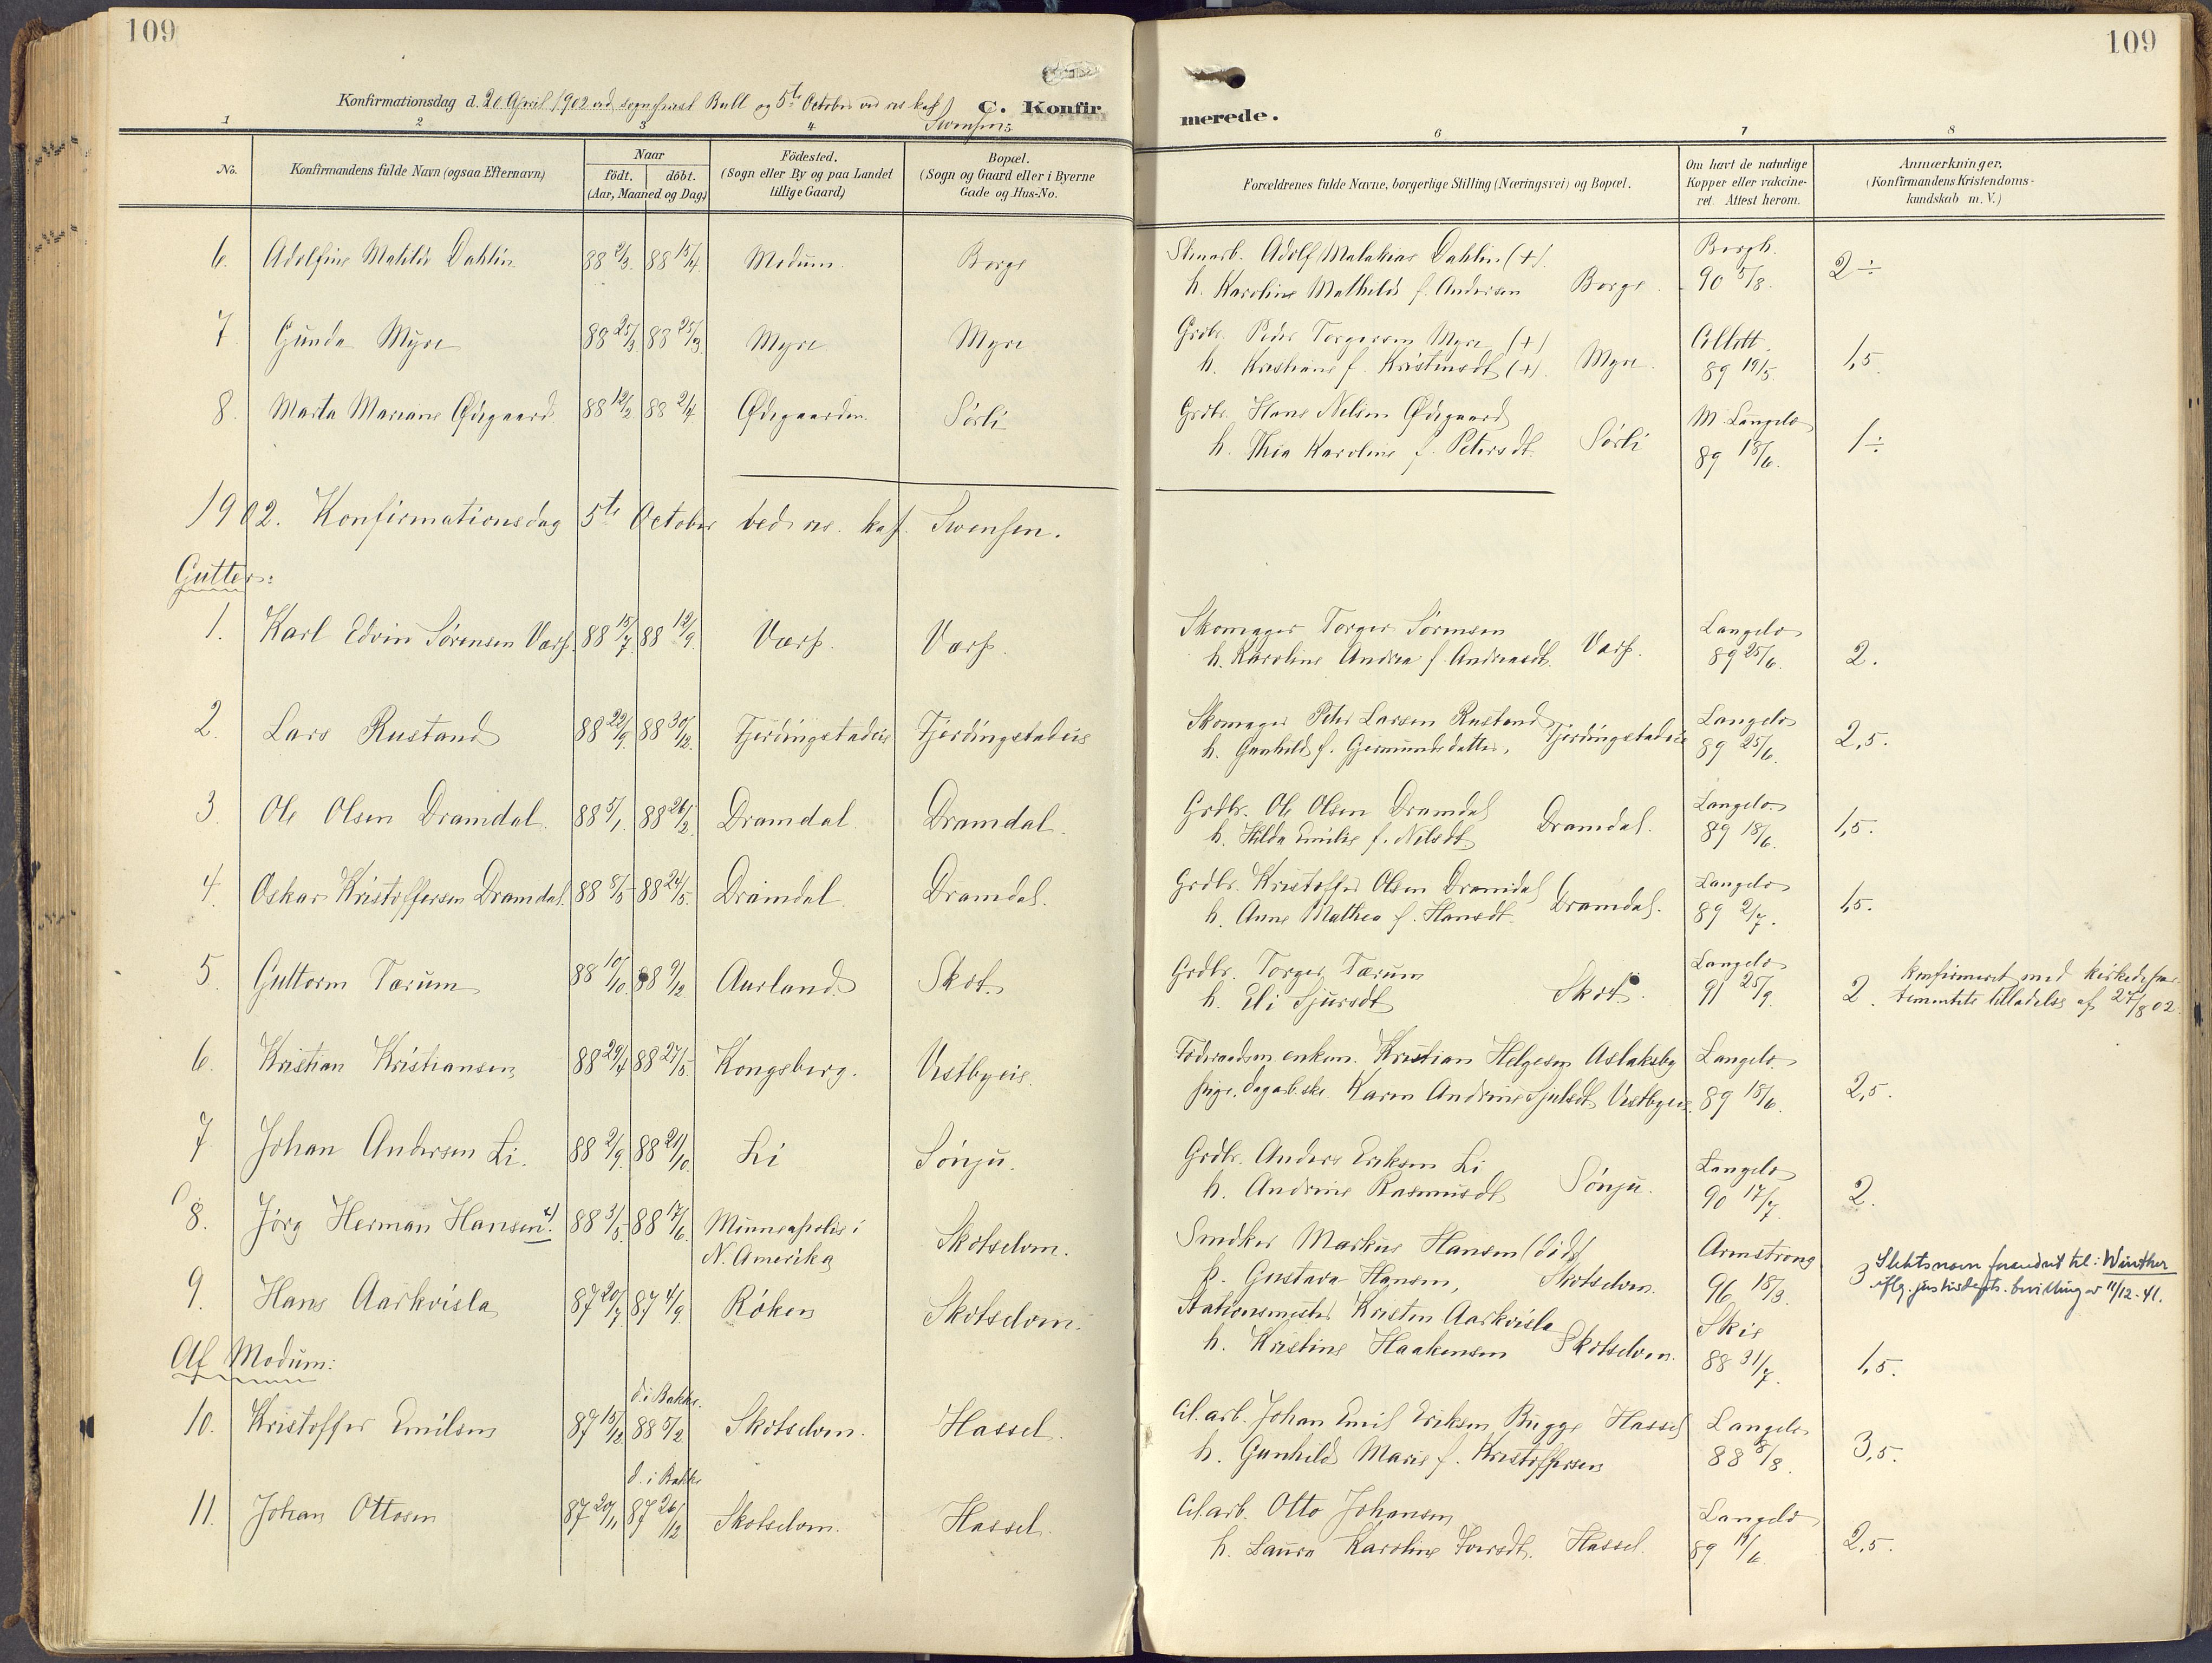 109
109
Konfirmationsdag d. 20 April 1902 ved sogneprest Bull og 5te October ved res. kap.
Svensen
C. Konfir
merede.
1 2 3 4 6 7 8
No.
Konfirmandens fulde Navn (ogsaa Efternavn)
Naar
födt. döbt.
(Aar, Maaned og Dag)
Födested.
(Sogn eller By og paa Landet
tillige Gaard)
Bopæl.
(Sogn og Gaard eller i Byerne
Gade og Hus-No.
Forældrenes fulde Navne, borgerlige Stilling (Næringsvei) og Bopæl.
Om havt de naturlige
Kopper eller vakcine-
ret. Attest herom.
Anmærkninger.
(Konfirmandens Kristendoms-
kundskab m. V.)
6. Adolfine Matilde Dahlin 88 2/3. 88 15/4. Modum. Borge
Adolf Malakias Dahlin (+).
h. Karoline Mathilde f. Andersen Borge. 90 5/8. 2÷
7. Gunda Myre 88 25/3 88 25/3. Myre Myre
Grdbr. Peder Torgersen Myre (+)
h. Kristiane f. Kristensdt (+). Myre. Collett. 89 19/5. 1,5.
8. Marta Mariane Ødegaard 88 12/2 88 2/4. Ødegaarden. Sørli
Grdbr. Hans Nilsen Ødegaard
h. Thia Karoline f. Petersdt. Sørli M. Langelo 89 18/6. 1÷
1902. Konfirmationsdag 5te October ved res. kap. Svensen.
Gutter:
1. Karl Edvin Sørensen Varp. 88 15/7. 88 12/9. Varp. Varp.
Skomager Torger Sørensen
h. Karoline Andrea f. Andreasdt. Varp. Langelo 89 25/6. 2.
2. Lars Rustand 88 22/9. 88 30/12. Fjerdingstadeie Fjerdingstadeie
Skomager Peter Larsen Rustand
h. Gunhild f. Gjermundsdatter. Fjerdingstadeie Langelo 89 25/6. 2,5.
3. Ole Olsen Dramdal. 88 5/1. 88 26/2. Dramdal Dramdal.
Grdbr. Ole Olsen Dramdal
h. Hilda Emilie f. Nilsdt. Dramdal. Langelo 89 18/6. 1,5.
4. Oskar Kristoffersen Dramdal. 88 8/5 88 24/5. Dramdal. Dramdal.
Grdbr. Kristoffer Olsen Dramdal
h. Anne Mathea f. Hansdt. Dramdal. Langelo 89 2/7. 1,5.
5. Guttorm Tærum 88 10/10. 88 9/12 Aurland. Skot.
Grdbr. Torger Tærum
h. Eli Sjursdt Skot. Langelo 91 25/9. 2. Konfirmeret med kirkedepar-
tementets tilladelse af 27/8 02.
6. Kristian Kristiansen 88 29/4 88 27/5. Kongsberg. Vestbyeie.
Føderaadsm. enkem. Kristian Helgesen Aslaksby
pige. dagarb.ske. Karen Andrine Vestbyeie. Langelo. 89 18/6. 2,5.
7. Johan Andersen Li. 88 2/9. 88 21/10. Li Sønju.
Grdbr. Anders Eriksen Li
h. Andrine Rasmusdt Sønju. Langelo 90 17/7. 2.
8. Jørg Herman Hansen. x) 88 3/5 88 17/6. Minneapolis i
N. Amerika Skotselven.
Snedker Markus Hansen
h. Gustava Hansen, Skotselven. Armstrong 96 18/3. 3 Slektsnavn forandret til: Winther
iflg. justisdepts. bevilling av 11/12-41.
9. Hans Aarkvisla 87 20/7. 87 4/9. Røken Skotselven.
Stationsmester Kristen Aarkvisla
h. Kristine Haakensen Skotselven. Skie 88 31/7. 1,5.
Af Modum:
10. Kristoffer Emilsen 87 15/12. d. i Bakke. 88 5/2. Skotselven. Hassel.
Cel.arb. Johan Emil Eriksen Bugge Hassel
h. Gunhild Marie f. Kristoffersen Langelo 88 8/8. 3,5.
11. Johan Ottosen 87 20/11 d. i Bakke 87 26/12 Skotselven. Hassel.
Cel.arb. Otto Johansen
h. Laura Karoline Iversdt. Hassel. Langelo 89 11/6. 2,5.